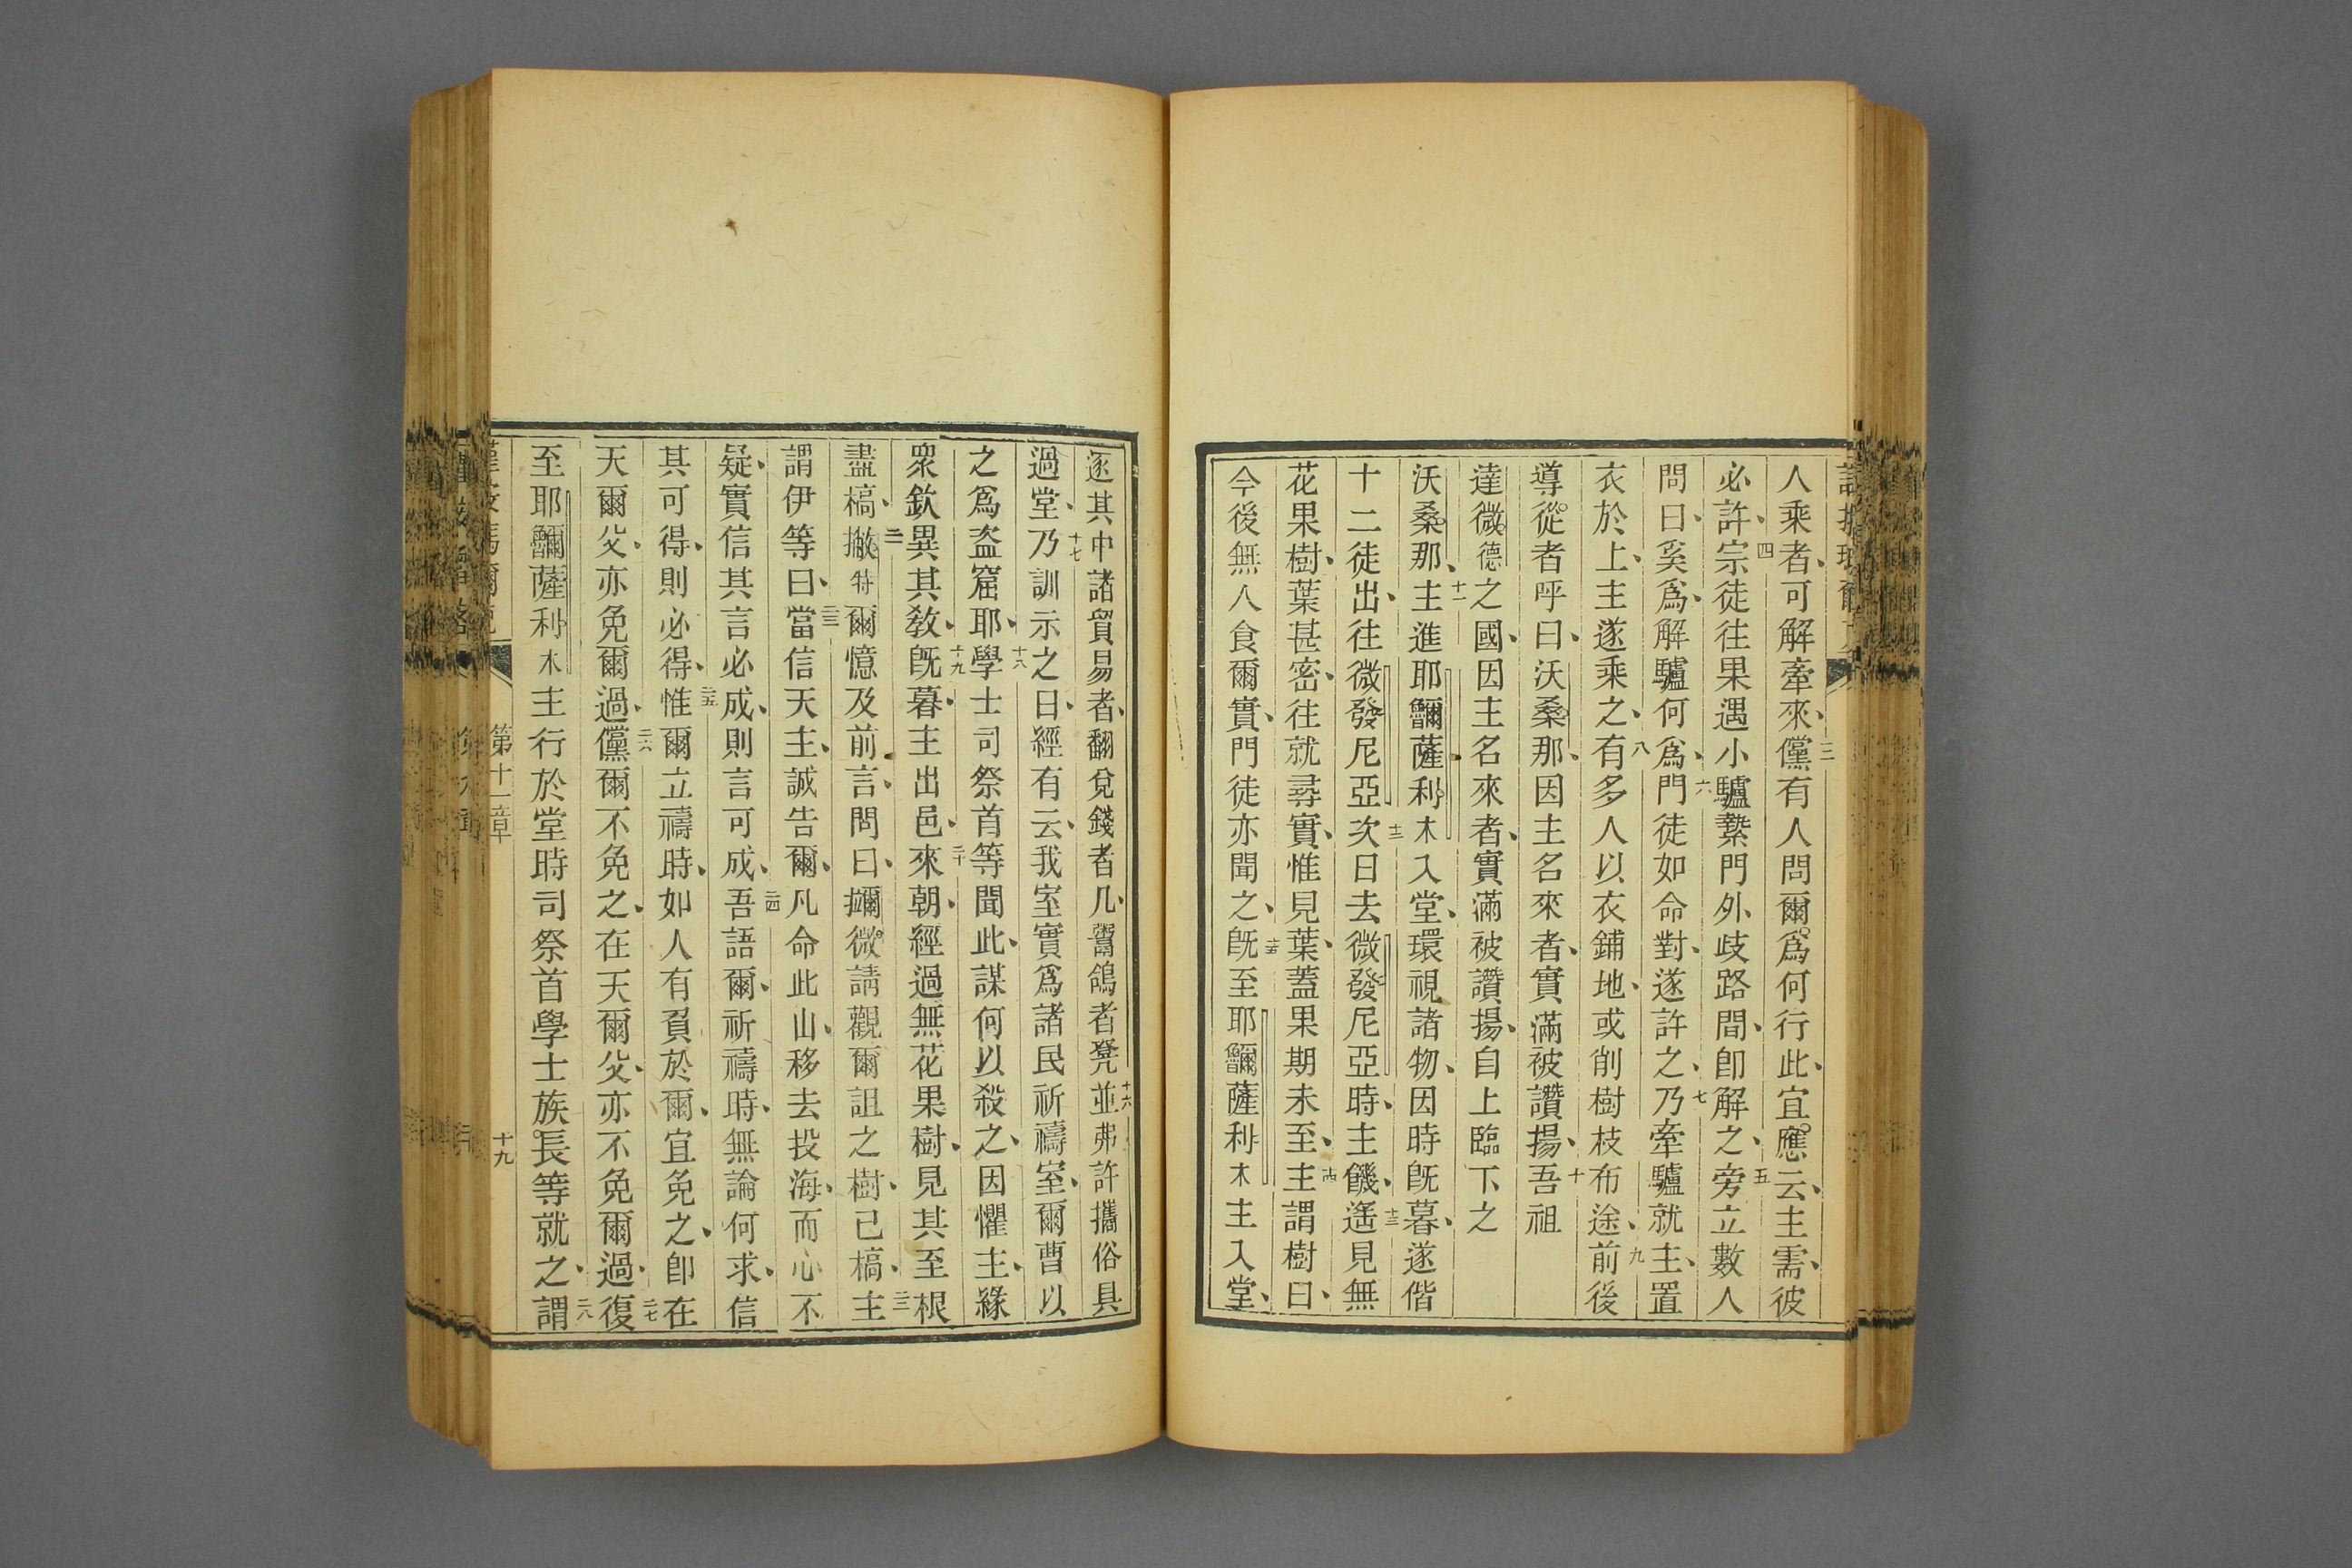 人乘者、可解牽來、三儻有人問爾。爲何行此、宜。應云、主需、彼
必、許、四宗徒往果遇小驢繫門外歧路間、卽解之、五旁立數人
問曰、奚爲、解驢何爲、六門徒如命對、遂許之、七乃牽驢就主、置
衣於上、主遂乘之、八有多人以衣鋪地、或削樹枝布途、九前後
導從。者呼曰、沃桑。那、因主名來者、實滿被讚揚、十吾祖
達微。德之國、因主名來者、實滿被讚揚、自上臨下之
沃桑。那、十一主進耶𩆜薩利木入堂、環視諸物、因時旣暮、遂偕
十二徒出、往微發尼亞、十二次日去微發尼亞時、主饑、十三遙見無
花果樹、葉甚密、往就尋實、惟見葉、蓋果期未至、十四主謂樹曰、
今後無人食爾實、門徒亦聞之、十五旣至耶薩利木主入堂、
逐其中諸貿易者、翻兌錢者几、鬻鴿者凳、十六並弗許攜俗具
過堂、十七乃訓示之曰、經有云、我室實爲諸民祈禱室、爾曹以
之爲盜窟耶、十八學士司祭首等聞此、謀何以殺之、因懼主、緣
衆欽異其敎、十九旣暮、主出邑、二十來朝、經過無花果樹、見其至根
盡槁、二一撇特爾憶及前言、問曰、微。請觀爾詛之樹、已槁、二二主
謂伊等曰、二三當信天主、誠告爾、凡命此山、移去投海、而心不
疑、實信其言必成、則言可成、二四吾語爾、祈禱時、無論何求、信
其可得、則必得、二五惟爾立禱時、如人有負於爾、宜免之、卽在
天爾父、亦免爾過、二六儻爾不免之、在天爾父、亦不免爾過、二七復
至耶薩利。木主行於堂時、司祭首學士族。長等就之、二八謂
第十一章
十九